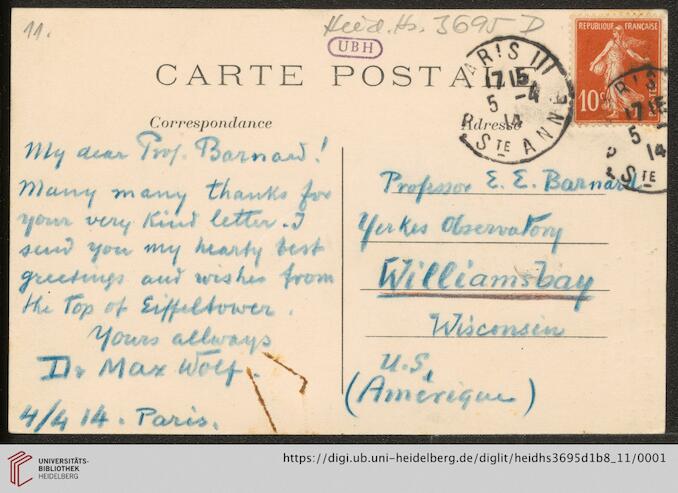 11.
Heid. Hs. 3695 D
UBH
CARTE POSTALE
REPUBLIQUE FRANÇAISE
10c
POSTES
PARIS III
17 15
5 -4
14
STE ANNE
17 15
5
14
STE
Correspondance
Adresse
My dear Prof. Barnard!
Many many thanks for
your very kind letter. I
send you my hearty best
greetings and wishes from
the top of Eiffeltower.
Yours allways
Dr Max Wolf.
4/4 14. Paris.
Professor E. E. Barnard
Yerkes Observatory
Williamsbay
Wisconsin
U.S.
(Amérique)
UNIVERSITÄTS-
BIBLIOTHEK
HEIDELBERG
https://digi.ub.uni-heidelberg.de/diglit/heidhs3695d1b8_11/0001